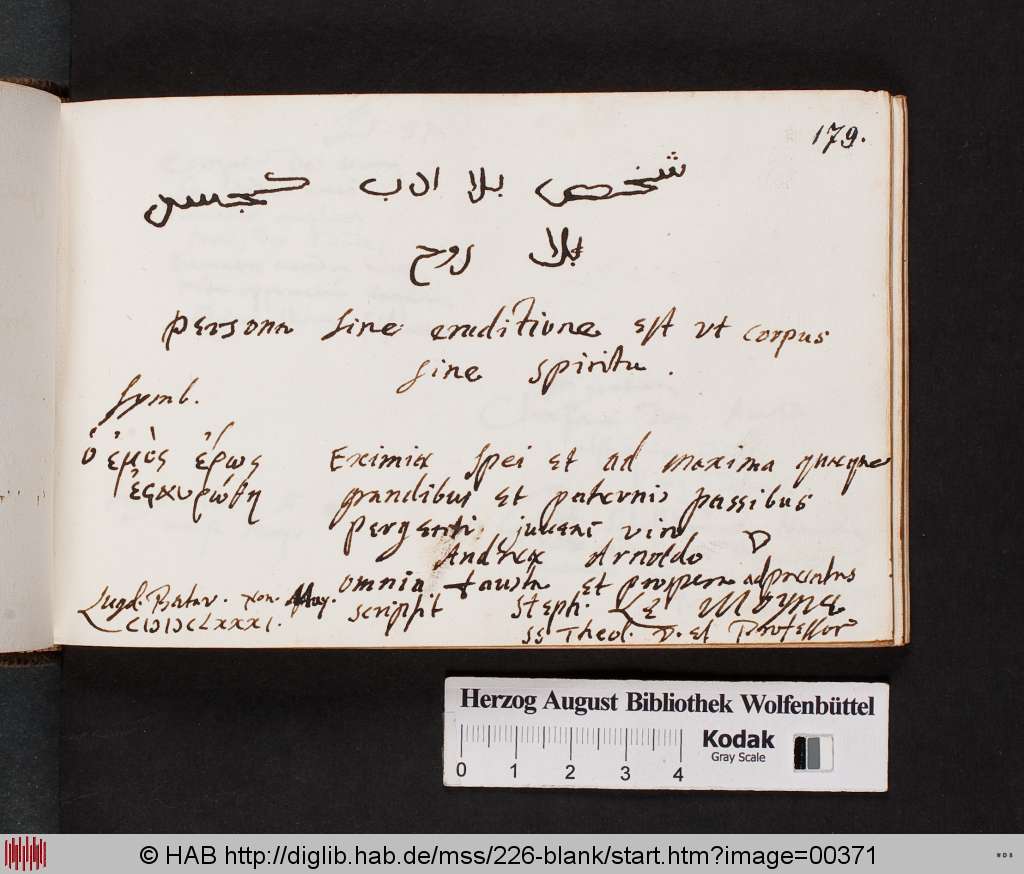 179.
شخص بلا ادب كجسد
بلا روح
Persona sine eruditione est ut corpus
sine spiritu.
Symb.
ὁ ἐμὸς ἔρως
ἐσταυρώθη
Eximiæ spei et ad maxima quæque
grandibus et paternis passibus
pergenti juveni viro
Andreæ Arnoldo D
omnia fausta et prospera adprecatus
scripsit Steph. Le Moyne
SS Theol. D. et Professor
Lugd. Batav. May.
CIↃIↃCLXXXI.
Herzog August Bibliothek Wolfenbüttel
Kodak
Gray Scale
0 1 2 3 4
© HAB http://diglib.hab.de/mss/226-blank/start.htm?image=00371